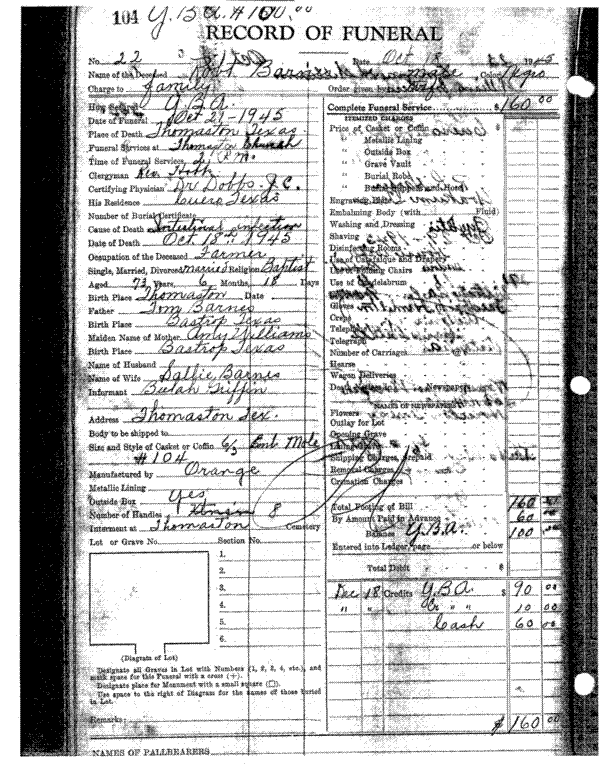 104 Y.B.A. #100.00
RECORD OF FUNERAL
No. 22 Date Oct 18 1945
Name of the Deceased Robt Barnes male Color Negro
Charge to family Order given by
How Secured Y.B.A.
Date of Funeral Oct 21-1945
Place of Death Thomaston Texas
Funeral Services at Thomaston Church
Time of Funeral Services 2 P.M.
Clergyman Rev.
Certifying Physician Dr Dobbs. J.C.
His Residence Cuero Texas
Number of Burial Certificate
Cause of Death Intestinal infection
Date of Death Oct 18th 1945
Occupation of the Deceased Farmer
Single, Married, Divorced married Religion Baptist
Aged 73 Years, 6 Months, 18 Days
Birth Place Thomaston Date
Father Tom Barnes
Birth Place Bastrop Texas
Maiden Name of Mother Amy Williams
Birth Place Bastrop Texas
Name of Husband
Name of Wife Sallie Barnes
Informant Bulah Griffin
Address Thomaston Tex.
Body to be shipped to
Size and Style of Casket or Coffin 6/3 Emb Mole
#104
Manufactured by Orange
Metallic Lining
Outside Box Yes
Number of Handles 8
Interment at Thomaston Cemetery
Lot or Grave No. Section No.
1.
2.
3.
4.
5.
6.
(Diagram of Lot)
Designate all Graves in Lot with Numbers (1, 2, 3, 4, etc.), and
mark space for this Funeral with a cross (+).
Designate place for Monument with a small square (□).
Use space to the right of Diagram for the names of those buried
in Lot.
Remarks
NAMES OF PALLBEARERS
Complete Funeral Service $160 00
ITEMIZED CHARGES
Price of Casket or Coffin
" Metallic Lining
" Outside Box
" Grave Vault
" Burial Robe
Engraving Plate
Embalming Body (with Fluid)
Washing and Dressing
Shaving
Disinfecting Rooms
Use of Catafalque and Drapery
Use of Folding Chairs
Use of Candelabrum
Gloves
Crepe
Telephone
Telegraph
Number of Carriages
Hearse
Wagon Deliveries
NAMES OF NEWSPAPERS
Flowers
Outlay for Lot
Opening Grave
Shipping Charges, prepaid
Removal Charges
Cremation Charges
Total Footing of Bill 160 00
By Amount Paid in Advance 60 00
Balance Y.B.A. 100 00
Entered into Ledger, page or below
Total Debt $
Dec 18 Credits Y.B.A. $ 90 00
" " Cr " " 10 00
Cash 60 00
$ 160 00